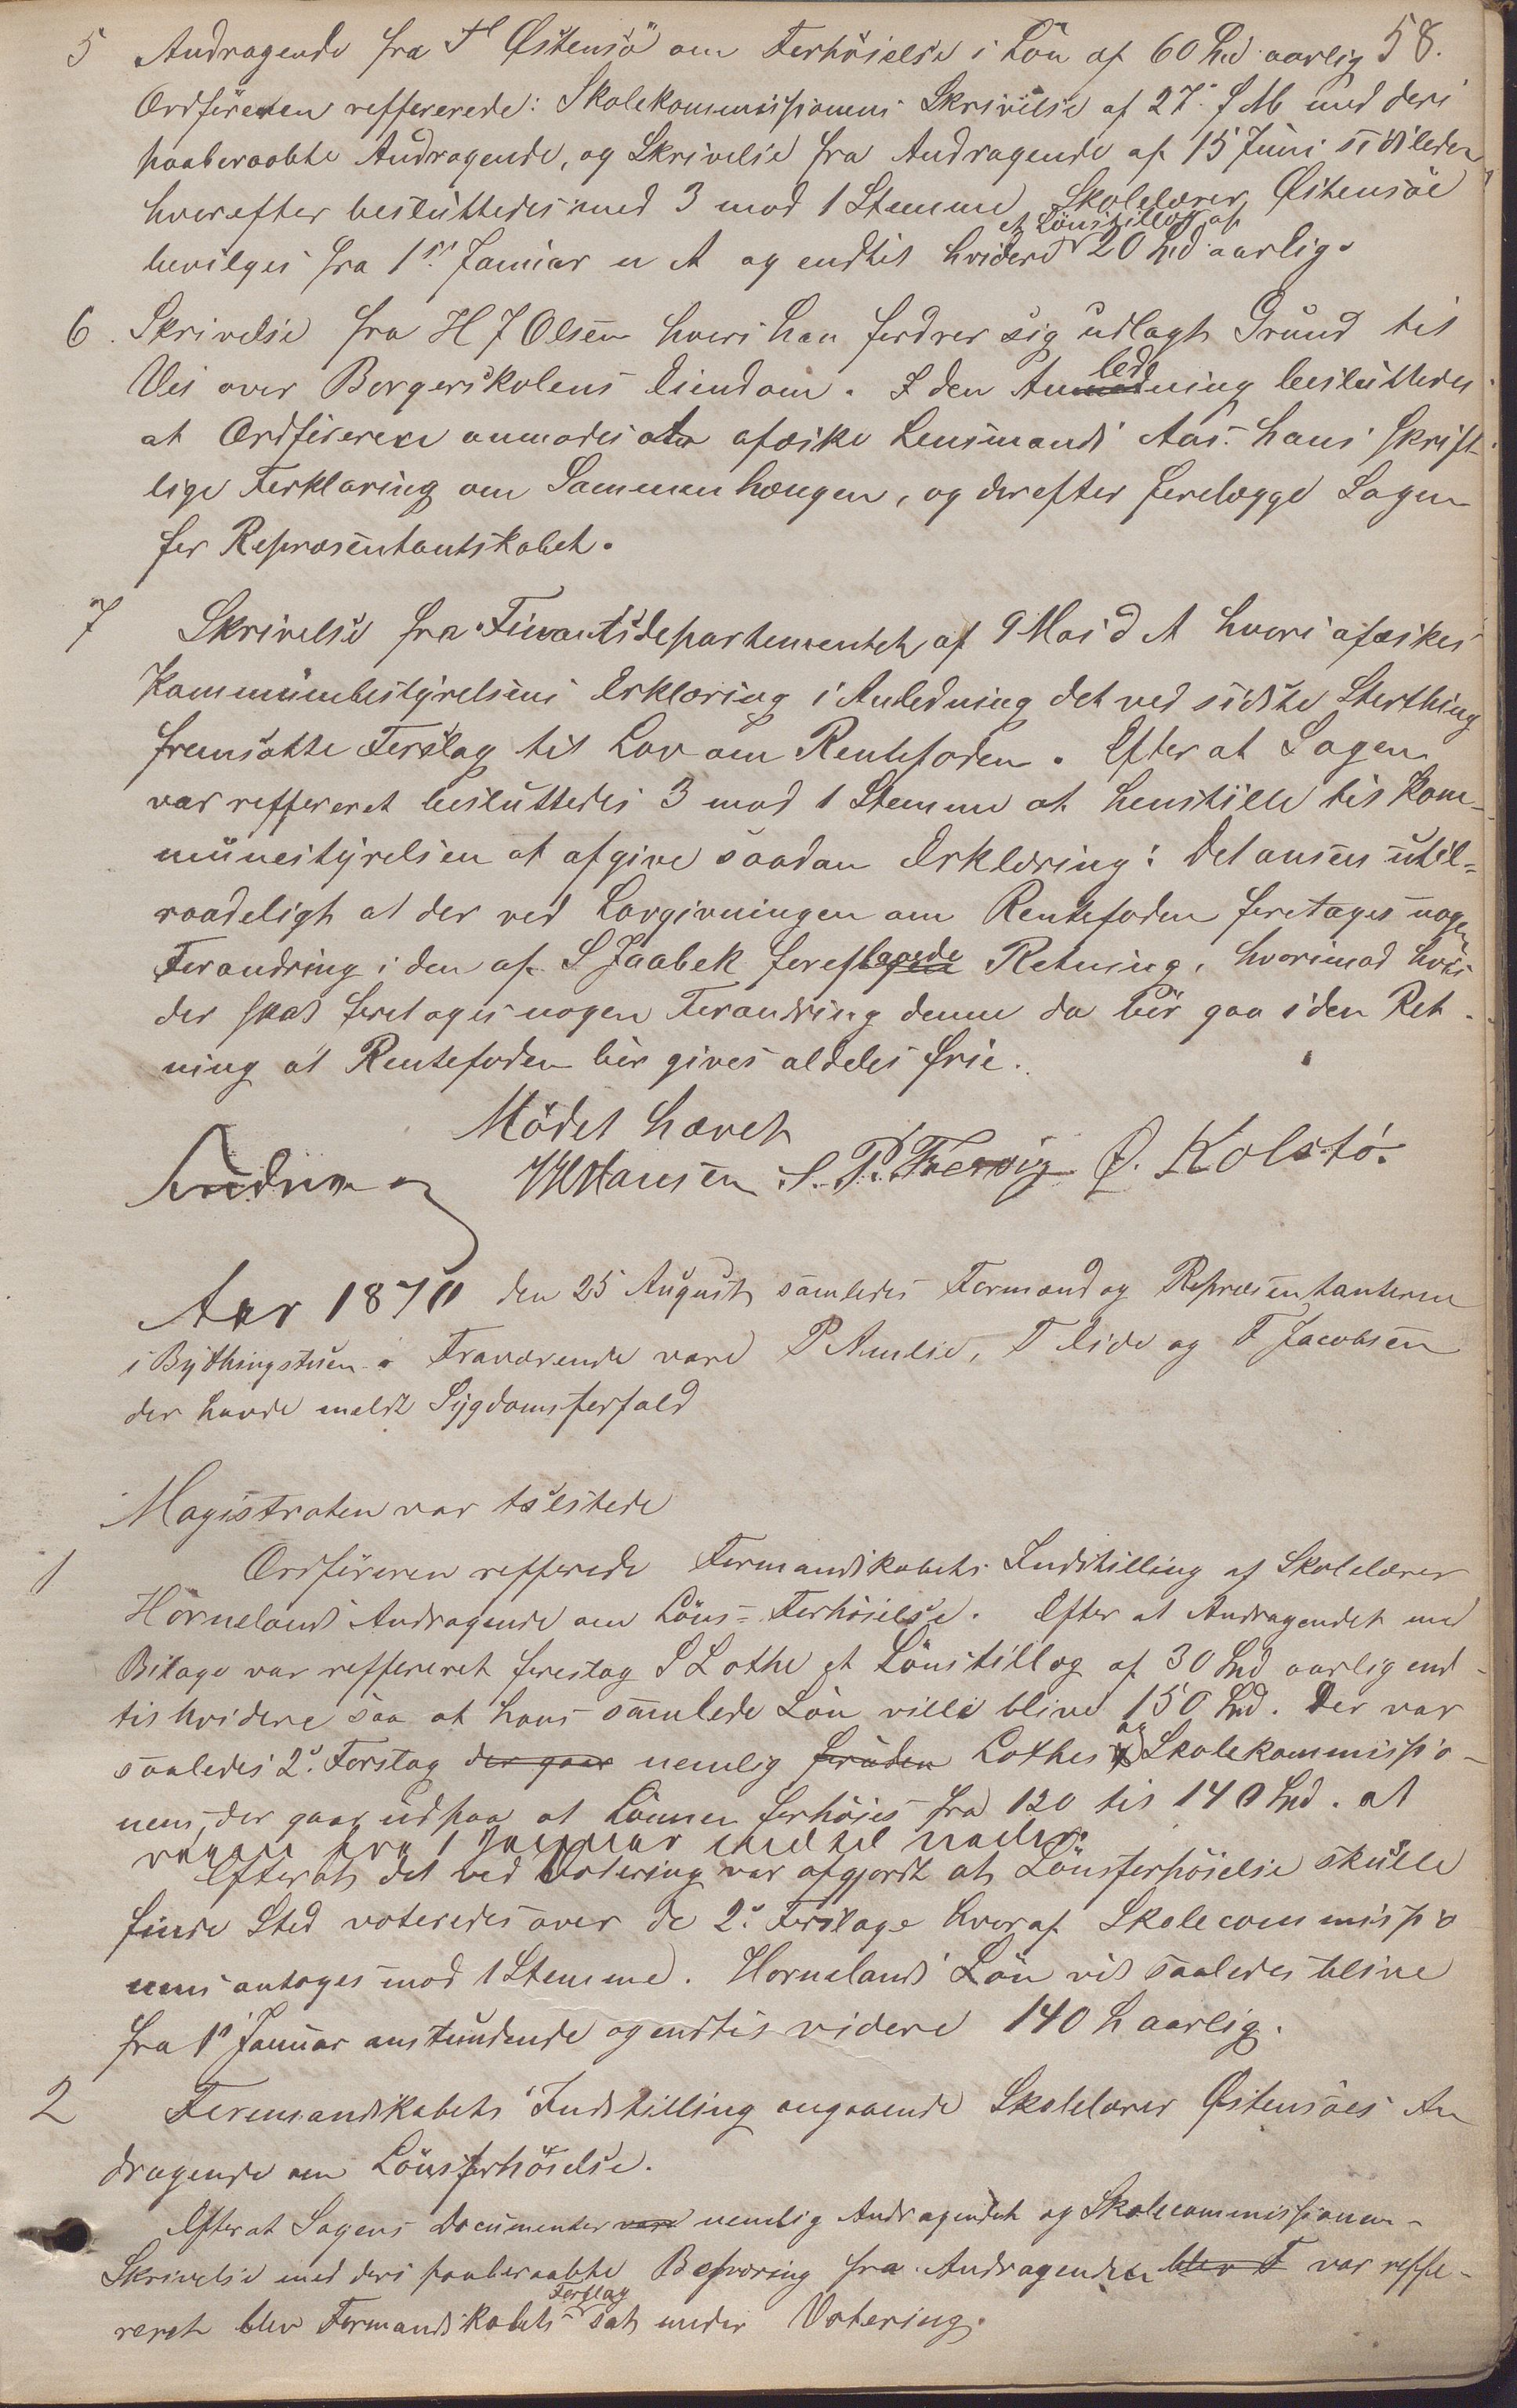 58.
5 Andragende fra Th Østensö om Forhöielse i Lön af 60 Spd aarlig
Ordföreren reffererede: Skolekommissionens Skrivelse af 27. f M med deri
paaberaabte Andragende, og Skrivelse fra Andragende af 15 Juni sidstleden
hvorefter besluttedes med 3 mod 1 Stemme Skolelærer Østensöe
et Lönstillæg af
bevilges fra 1ste Januar n A og endtil hvidere 20 Spd aarlig.
6. Skrivelse fra H J Olsen hvori han fordrer sig udlagt Grund til
Vei over Borgerskolens Eiendom. I den Anledning besluttedes
at Ordföreren anmodes at afæske Lensmand Aas. hans skrift-
lige Forklaring om Sammenhængen, og derefter forelægge Sagen
for Repræsentantskabet.
7 Skrivelse fra Finantsdepartementet af 9 Mai d A hvori afæskes
Kommunebestyrelsens Erklæring i Anledning det ved sidste Storthing
fremsatte Forslag til Lov om Rentefoden. Efter at Sagen
var reffereret besluttedes 3 mod 1 Stemme at henstille til Kom-
munestyrelsen at afgive saadan Erklæring: Det ansees util-
raadeligt at der ved Lovgivningen om Rentefoden foretages nogen
Forandring i den af S Jaabek foreslagede Retning, hvorimod hvis
der skal foretages nogen Forandring denne da bör gaa i den Ret-
ning at Rentefoden bör gives aldeles frie.
Mödet hævet
Hansen S. P. Ø. Kolstö.
Aar 1870 den 25 August samledes Formænd og Repræsentanterne
i Bythingstuen. Fraværende vare P Amlie, T Eide og F Jacobsen
der havde meldt Sygdomsforfald
Magistraten var tilstede
1 Ordföreren refferede Formandskabets Indstilling af Skolelærer
Hornelands Andragende om Löns-Forhöielse. Efter at Andragendet med
Bilage var reffereret foreslog S Lothe et Lönstillæg af 30 Spd aarlig end-
til hvidere saa at hans samlede Lön ville blive 150 Spd. Der var
saaledes 2de Forslag der gaar nemlig foruden Lothes og Skolekommissio-
nens, der gaar ud paa at Lönnen forhöies fra 120 til 140 Spd. at
regne fra 1 Januar indtil videre.
Efterat det ved Votering var afgjordt at Lönsforhöielse skulle
finde Sted voteredes over de 2de Forslage hvoraf Skolecommissio
nens antoges mod 1 Stemme. Hornelands Lön vil saaledes blive
fra 1ste Januar anstundende og endtil videre 140 Spd aarlig.
2 Formandskabets Indstilling angaaende Skolelærer Østensöes An
dragende om Lönsforhöielse.
Efter at Sagens Documenter vare nemlig Andragendet og Skolecommissionen-
Skrivelse med deri paaberaabte Besvaring fra Andragenden blev F var reffe-
Forslag
reret blev Formandskabets sat under Votering.